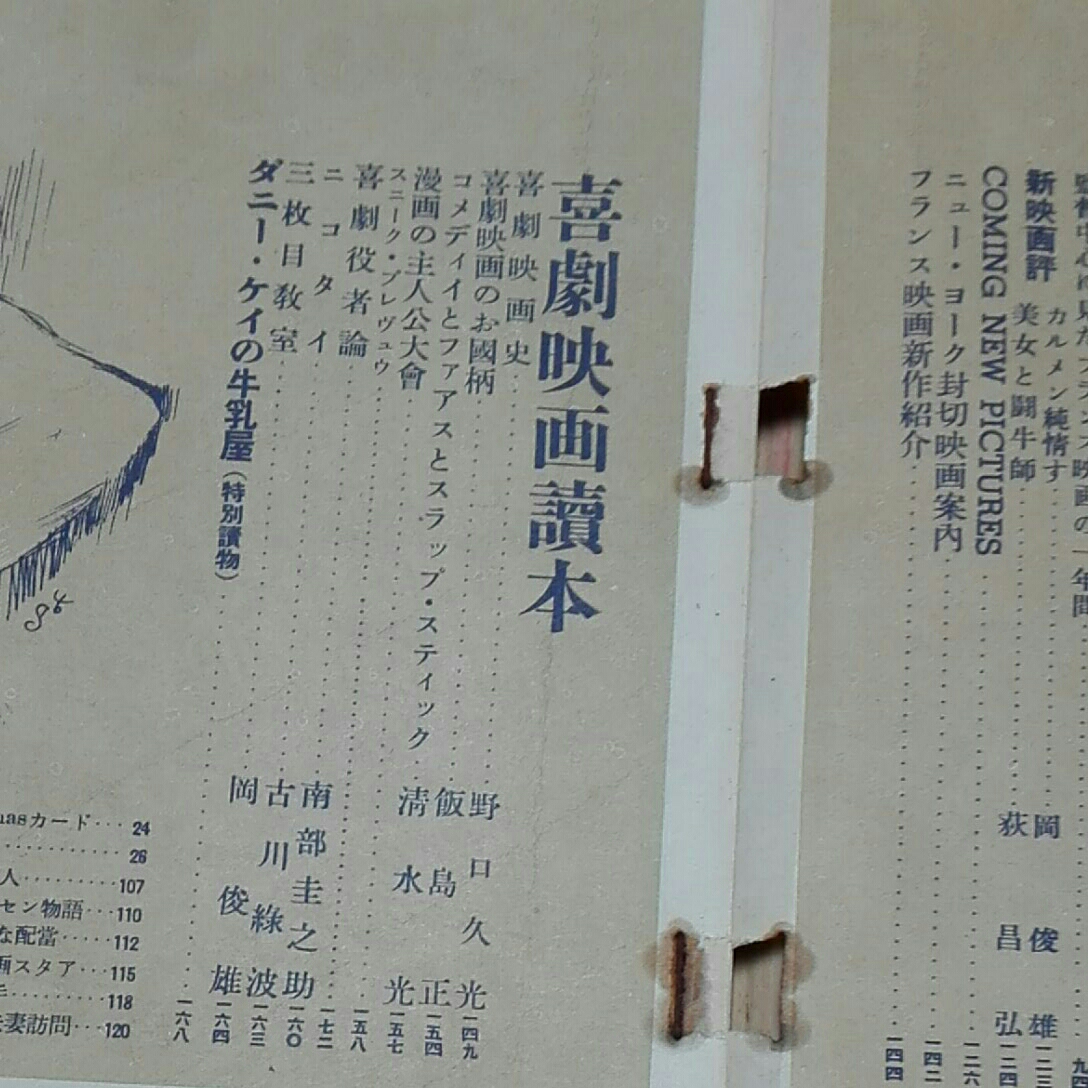 映画の一年間
新映画評 カルメン純情す 岡 俊雄
美女と闘牛師 荻 昌弘 一二四
COMING NEW PICTURES 一二六
ニュー・ヨーク封切映画案内 一四二
フランス映画新作紹介 一四四
喜劇映画讀本
喜劇映画史 野口久光 一四九
喜劇映画のお國柄 飯島正 一五四
コメディイとファアスとスラップ・スティック 清水光 一五七
漫画の主人公大會 一五八
スニーク・プレヴュウ 一七二
喜劇役者論 南部圭之助 一六〇
ニコタイ 古川綠波 一六三
三枚目教室 岡俊雄 一六四
ダニー・ケイの牛乳屋(特別讀物) 一六八
masカード 24
26
人 107
セン物語 110
な配當 112
画スタア 115
118
夫妻訪問 120